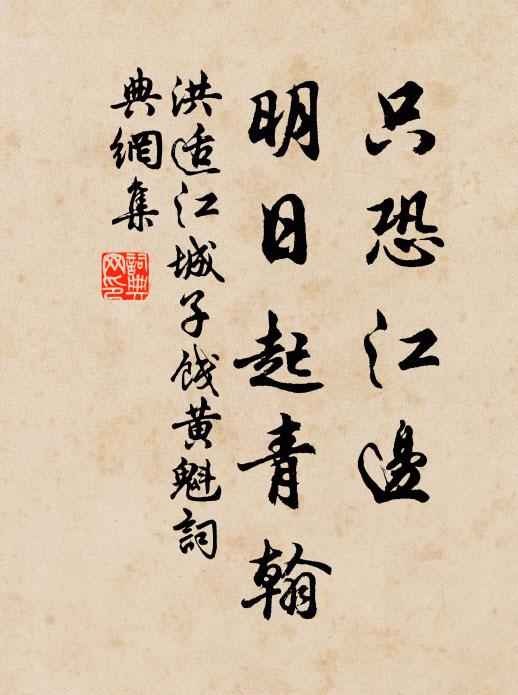 只恐江邊
明日起青翰
洪适江城子餞黃魁詞
典網集
詞典網印